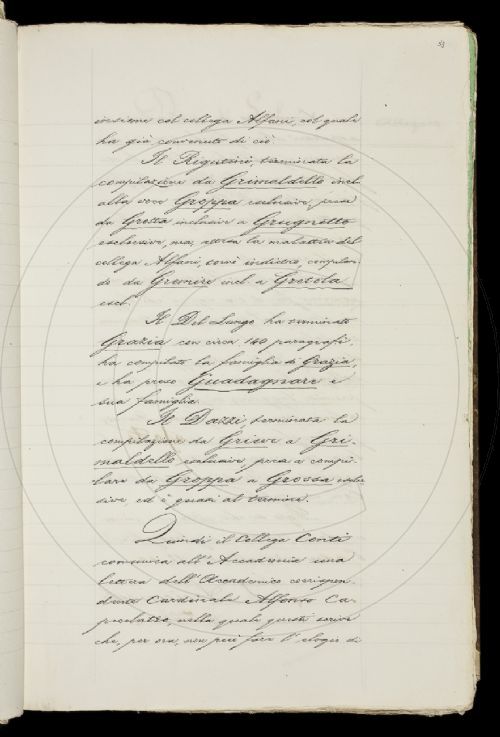 53
insieme col collega Alfani, col quale
ha già convenuto di ciò.
Il Rigutini, terminata la
compilazione da Grimaldello incl.
alla voce Groppa esclusive, prese
da Grotta inclusive a Grugnetto
esclusive, ma, attesa la malattia del
collega Alfani, tornò indietro, compilan-
do da Gremire incl. a Gretola
escl.
Il Del Lungo ha terminato
Grazia con circa 140 paragrafi,
ha compilato la famiglia di Grazia,
e ha preso Guadagnare e
sua famiglia.
Il Dazzi terminata la
compilazione da Grieve a Gri-
maldello esclusive, prese a compi-
lare da Groppa a Grossa esclu-
sive, ed è quasi al termine.
Quindi il Collega Conti
comunica all'Accademia una
lettera dell'Accademico corrispon-
dente Cardinale Alfonso Ca-
pecelatro, nella quale questi scrive
che, per ora, non può fare l'elogio di